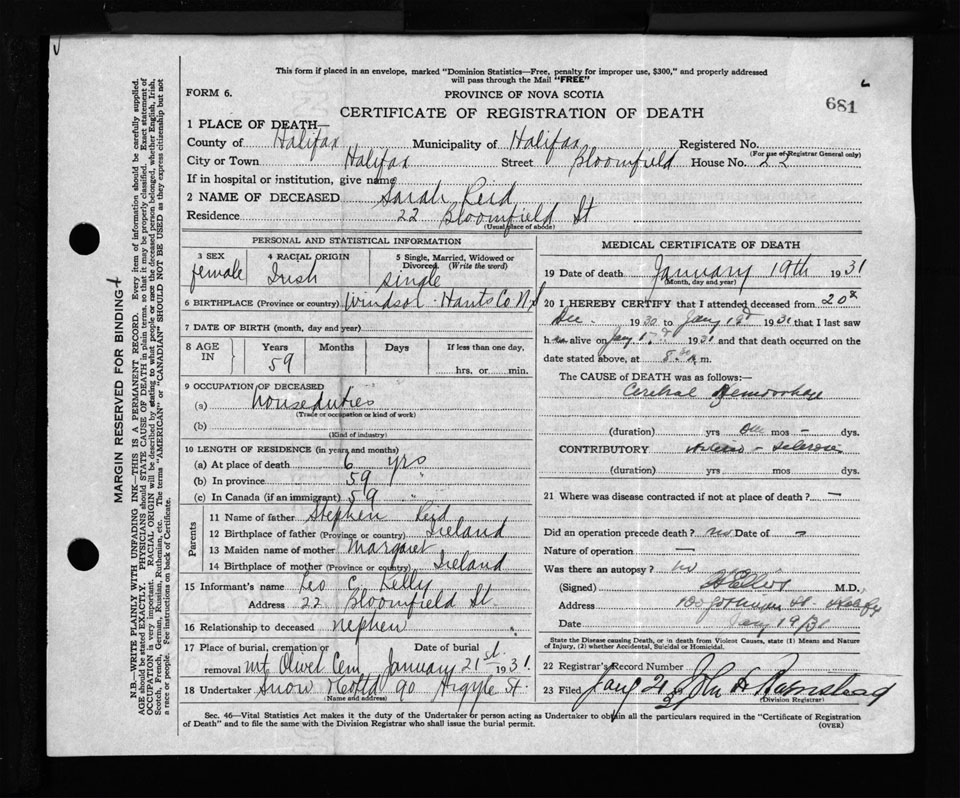 This form if placed in an envelope, marked "Dominion Statistics—Free, penalty for improper use, $300," and properly addressed
will pass through the Mail "FREE"
FORM 6.
PROVINCE OF NOVA SCOTIA
681
CERTIFICATE OF REGISTRATION OF DEATH
1 PLACE OF DEATH—
County of Halifax Municipality of Halifax Registered No.
(For use of Registrar General only)
City or Town Halifax Street Bloomfield House No. 22
If in hospital or institution, give name
2 NAME OF DECEASED Sarah Reid
Residence 22 Bloomfield St
(Usual place of abode)
PERSONAL AND STATISTICAL INFORMATION
3 SEX female
4 RACIAL ORIGIN Irish
5 Single, Married, Widowed or Divorced (Write the word) Single
6 BIRTHPLACE (Province or country) Windsor Hants Co N.S
7 DATE OF BIRTH (month, day and year)
8 AGE IN Years 59 Months Days If less than one day, hrs. or min.
9 OCCUPATION OF DECEASED
(a) house duties
(Trade or occupation or kind of work)
(b)
(Kind of industry)
10 LENGTH OF RESIDENCE (in years and months)
(a) At place of death 6 yrs
(b) In province 59 "
(c) In Canada (if an immigrant) 59 "
Parents
11 Name of father Stephen Reid
12 Birthplace of father (Province or country) Ireland
13 Maiden name of mother Margaret
14 Birthplace of mother (Province or country) Ireland
15 Informant's name Leo C. Kelly
Address 22 Bloomfield St.
16 Relationship to deceased nephew
17 Place of burial, cremation or removal Mt Olivet Cem Date of burial January 21st. 1931.
18 Undertaker Snow & Co Ltd 90 Argyle St.
(Name and address)
MEDICAL CERTIFICATE OF DEATH
19 Date of death January 19th 1931
(Month, day and year)
20 I HEREBY CERTIFY that I attended deceased from 20th
Dec. 1930 to Jany 1931 that I last saw
h er alive on Jany 1931 and that death occurred on the
date stated above, at m.
The CAUSE OF DEATH was as follows:—
Cerebral Hemorrhage
(duration) yrs One mos – dys.
CONTRIBUTORY Arterio-Sclerosis
(duration) yrs mos dys.
21 Where was disease contracted if not at place of death? —
Did an operation precede death? no Date of –
Nature of operation —
Was there an autopsy? no
(Signed) M.D.
Address St. Halifax
Date Jany 19/31
State the Disease causing Death, or in death from Violent Causes, state (1) Means and Nature
of Injury, (2) whether Accidental, Suicidal or Homicidal.
22 Registrar's Record Number
23 Filed Jany 21/31 John H Barnstead
(Division Registrar)
Sec. 46—Vital Statistics Act makes it the duty of the Undertaker or person acting as Undertaker to obtain all the particulars required in the "Certificate of Registration
of Death" and to file the same with the Division Registrar who shall issue the burial permit.
(OVER)
MARGIN RESERVED FOR BINDING
N.B.—WRITE PLAINLY WITH UNFADING INK—THIS IS A PERMANENT RECORD. Every item of information should be carefully supplied.
AGE should be stated EXACTLY. PHYSICIANS should STATE CAUSE OF DEATH in plain terms, so that it may be properly classified. Exact statement of
OCCUPATION is very important. RACIAL ORIGIN will be described by stating to what people or race the deceased person belonged, whether English, Irish,
Scotch, French, German, Russian, Ruthenian, etc. The terms "AMERICAN" or "CANADIAN" SHOULD NOT BE USED as they express citizenship but not
a race or people. Fee instructions on back of Certificate.